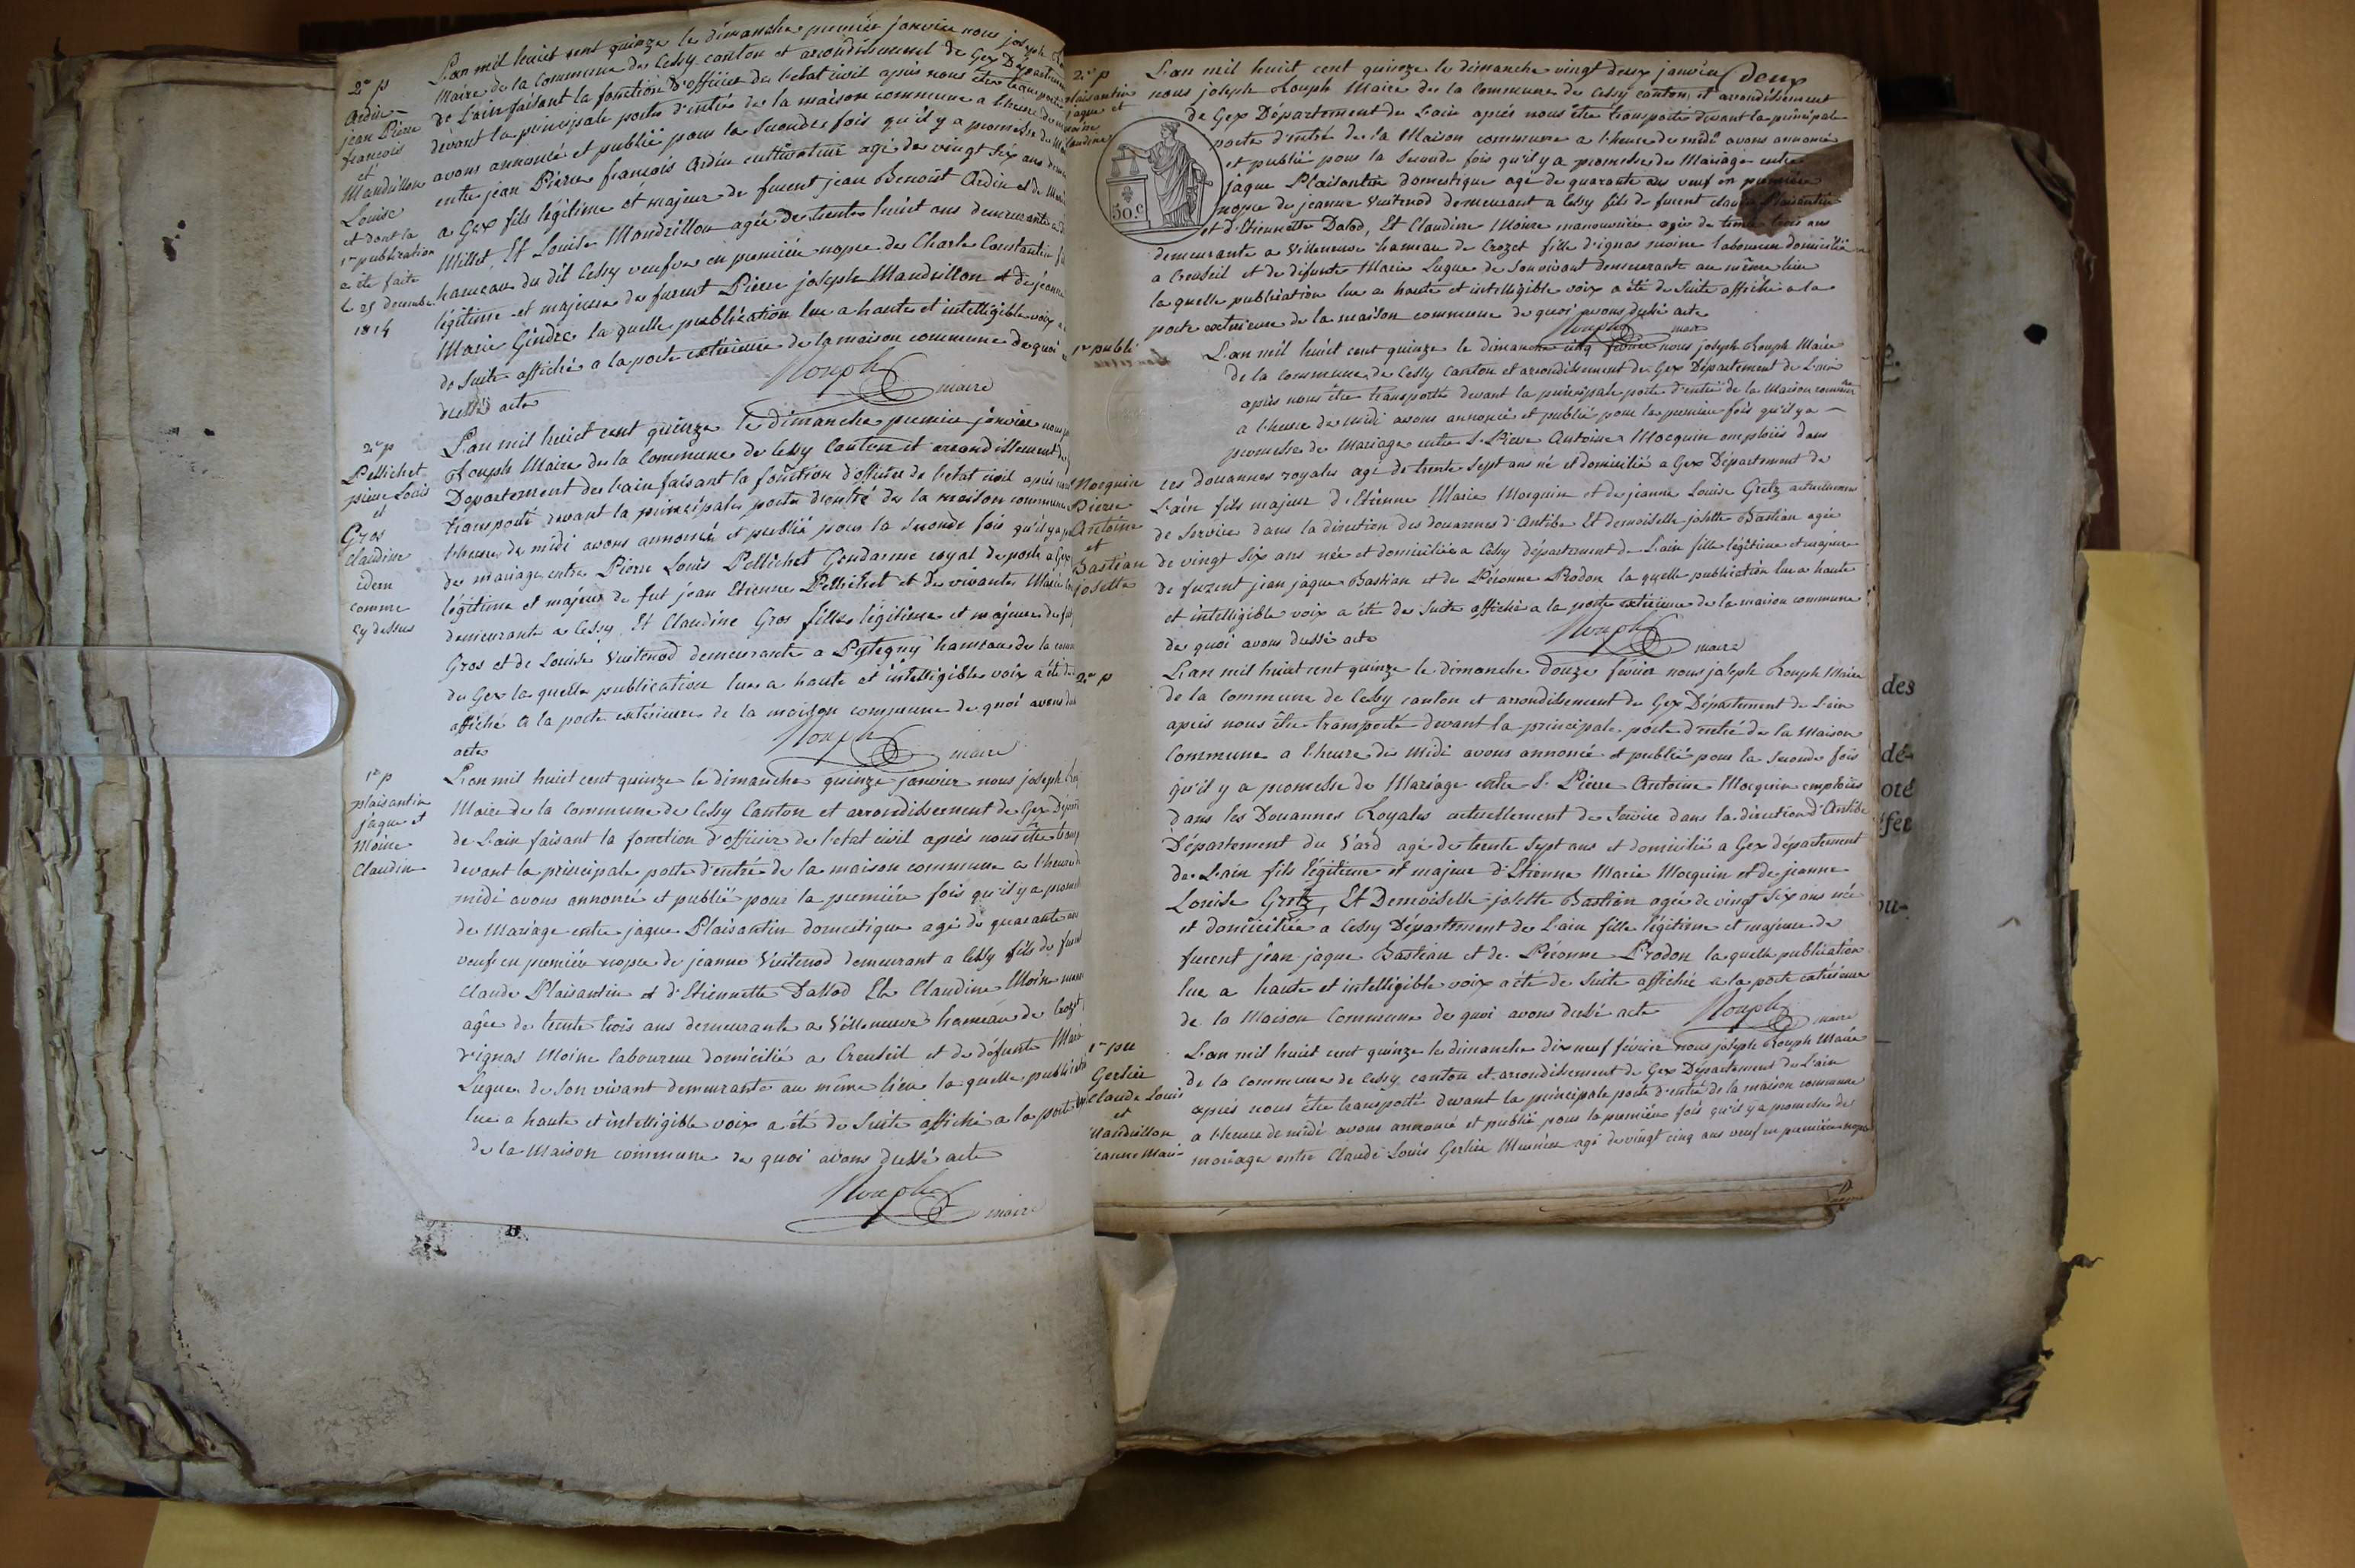 2e p
Ardin
jean Pierre
francois
et
Mandrillon
Louise
et dont la
1re publication
a été faite
le 25 decembre
1814
L'an mil huict cent quinze le dimanche premier janvier nous joseph
Maire de la Commune de Cessy canton et arrondissement de Gex Département
de L'ain faisant la fonction d'officier de l'etat civil après nous être transporté
devant la principale porte d'entrée de la maison commune a l'heure de
avons annoncé et publié pour la seconde fois qu'il y a promesse de
entre jean Pierre francois Ardin cultivateur agé de vingt six ans
a Gex fils légitime et majeur de furent jean Benoist Ardin et de
Millet, Et Louise Mandrillon agée de trente huict ans demeurante a
hameau du dit Cessy veufve en première nopce de Charle Constantin
légitime et majeure de furent Pierre joseph Mandrillon et de jeanne
Marie Gindre la quelle publication lue a haute et intelligible voix
de suite affiché a la porte extérieure de la maison commune de quoi
dressé acte
Rouph maire
2e p
Pellichet
pierre Louis
et
Gros
claudine
idem
comme
cy dessus
L'an mil huict cent quinze le dimanche premier janvier nous
Rouph Maire de la Commune de Cessy Canton et arrondissement de
Département de L'ain faisant la fonction d'officier de l'etat civil après nous
transporté devant la principale porte d'entré de la maison commune
l'heure de midi avons annoncé et publié pour la seconde fois qu'il y a
de mariage entre Pierre Louis Pellichet Gendarme royal de poste a Gex
légitime et majeur de fut jean Etienne Pellichet et de vivante Marie
demeurante a Cessy, Et Claudine Gros fille légitime et majeure de
Gros et de Louise Vuitenod demeurante a Pytegny hameau de la
de Gex la quelle publication lue a haute et intelligible voix a été de
affiché a la porte extérieure de la maison commune de quoi avons
acte
Rouph maire
1re p
plaisantin
jaque et
Moine
Claudine
L'an mil huict cent quinze le dimanche quinze janvier nous joseph
Maire de la Commune de Cessy Canton et arrondissement de Gex
de L'ain faisant la fonction d'officier de l'etat civil après nous être
devant la principale porte d'entré de la maison commune a l'heure de
midi avons annoncé et publié pour la première fois qu'il y a
de Mariage entre jaque Plaisantin domestique agé de quarante ans
veuf en première nopce de jeanne Vuitenod demeurant a Cessy fils de furent
Claude Plaisantin et d'Etiennette Dallod Et Claudine Moine
agée de trente trois ans demeurante a Villeneuve hameau de Crozet
d'ignas Moine laboureur domicilié a Creuseil et de défunte Marie
Lugue de son vivant demeurante au même lieu la quelle publication
lue a haute et intelligible voix a été de suite affiché a la porte
de la Maison commune de quoi avons dressé acte
Rouph maire
2e p
plaisantin
jaque et
moine
claudine
deux
50 c.
L'an mil huict cent quinze le dimanche vingt deux janvier
nous joseph Rouph Maire de la Commune de Cessy canton et arrondissement
de Gex Département de L'ain après nous être transporté devant la principale
porte d'entré de la Maison commune a l'heure de midi avons annoncé
et publié pour la seconde fois qu'il y a promesse de Mariage entre
jaque Plaisantin domestique agé de quarante ans veuf en première
nopce de jeanne Vuitenod demeurant a Cessy fils de furent claude Plaisantin
et d'Etiennette Dalod, Et Claudine Moine manouvrière agée de trente trois ans
demeurante a Villeneuve hameau de Crozet fille d'ignas moine laboureur domicilié
a Creuseil et de défunte Marie Lugue de son vivant demeurante au même lieu
la quelle publication lue a haute et intelligible voix a été de suite affiché a la
porte extérieure de la maison commune de quoi avons dressé acte
Rouph maire
1re publi
Mocquin
Pierre
Antoine
et
Bastian
josette
L'an mil huict cent quinze le dimanche cinq février nous joseph Rouph Maire
de la Commune de Cessy Canton et arrondissement de Gex Département de L'ain
après nous être transporté devant la principale porte d'entrée de la Maison commune
a l'heure de midi avons annoncé et publié pour la première fois qu'il y a
promesse de Mariage entre Sr Pierre Antoine Mocquin emploiié dans
les douannes royales agé de trente sept ans né et domicilié a Gex Département de
L'ain fils majeur d'Etienne Marie Mocquin et de jeanne Louise Gretz actuellement
de service dans la direction des douannes d'Antibe Et demoiselle josette Bastian agée
de vingt six ans née et domiciliée a Cessy département de L'ain fille légitime et majeure
de furent jean jaque Bastian et de Péronne Prodon la quelle publication lue a haute
et intelligible voix a été de suite affiché a la porte extérieure de la maison commune
de quoi avons dressé acte
Rouph maire
2e p
L'an mil huict cent quinze le dimanche douze février nous joseph Rouph Maire
de la Commune de Cessy canton et arrondissement de Gex Département de L'ain
après nous être transporté devant la principale porte d'entré de la Maison
Commune a l'heure de Midi avons annoncé et publié pour la seconde fois
qu'il y a promesse de Mariage entre Sr Pierre Antoine Mocquin emploiié
dans les Douannes Royales actuellement de service dans la direction d'Antibe
Département du Vard agé de trente sept ans et domicilié a Gex département
de L'ain fils légitime et majeur d'Etienne Marie Mocquin et de jeanne
Louise Gretz, Et Demoiselle josette Bastian agée de vingt six ans née
et domiciliée a Cessy Département de L'ain fille légitime et majeure de
furent jean jaque Bastian et de Péronne Prodon la quelle publication
lue a haute et intelligible voix a été de suite affiché a la porte extérieure
de la Maison Commune de quoi avons dressé acte
Rouph maire
1re pu
Gerlier
Claude Louis
et
Mandrillon
jeanne Marie
L'an mil huict cent quinze le dimanche dix neuf février nous joseph Rouph Maire
de la commune de Cessy canton et arrondissement de Gex Département de L'ain
après nous être transporté devant la principale porte d'entré de la maison commune
a l'heure de midi avons annoncé et publié pour la première fois qu'il y a promesse de
mariage entre Claude Louis Gerlier Meunier agé de vingt cinq ans veuf en première nopce
des
dé-
oté
fer
ou-